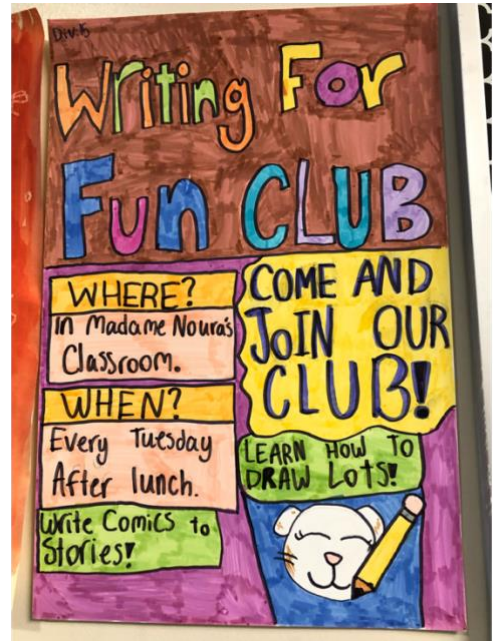 Div:5
Writing For
Fun CLUB
WHERE?
In Madame Noura's
Classroom.
WHEN?
Every Tuesday
After lunch.
Write Comics to
Stories!
COME AND
JOIN OUR
CLUB!
LEARN HOW TO
DRAW LOTS!